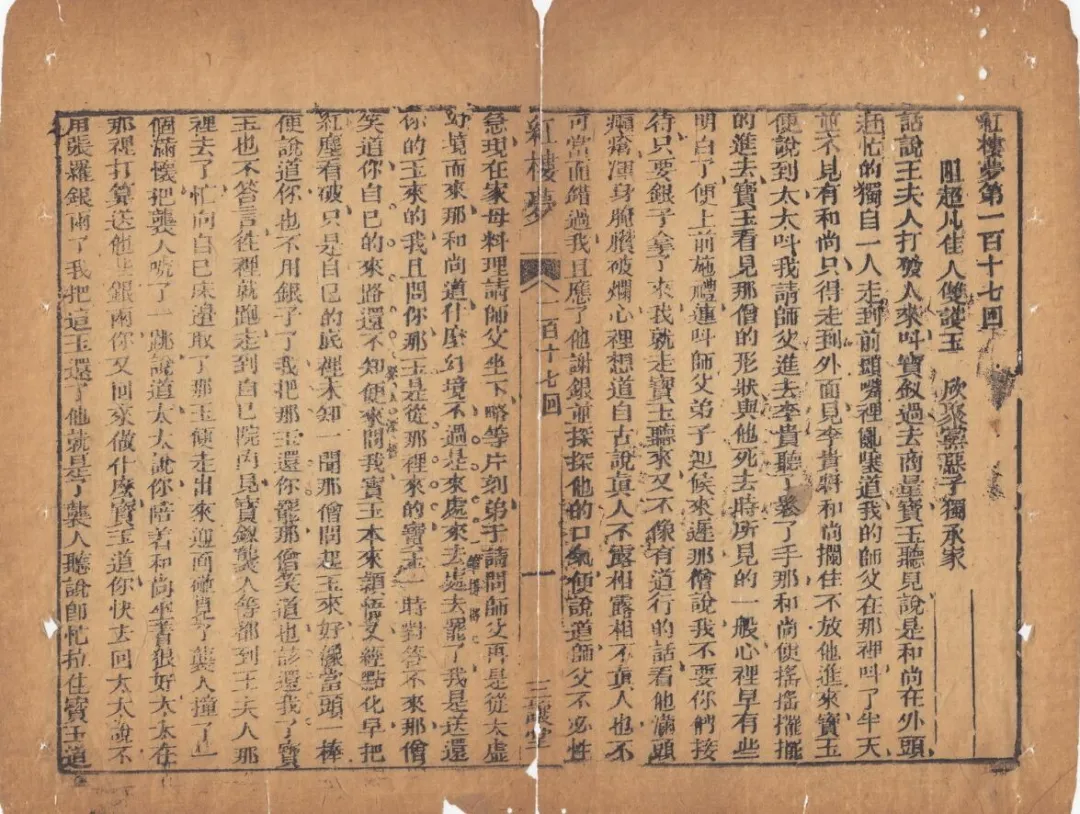 紅樓夢第一百十七回
阻超凡佳人雙護玉　欣聚黨惡子獨承家
話說王夫人打發人來呌寶釵過去商量寶玉聽見說是和尚在外頭
赶忙的獨自一人走到前頭嘴裡亂嚷道我的師父在那裡呌了半天
並不見有和尚只得走到外面見李貴將和尚攔住不放他進來寶玉
便說到太太呌我請師父進去李貴聽了鬆了手那和尚便搖搖擺擺
的進去寶玉看見那僧的形狀與他死去時所見的一般心裡早有些
明白了便上前施禮連呌師父弟子迎候來遲那僧說我不要你們接
待只要銀子拿了來我就走寶玉聽來又不像有道行的話看他滿頭
癩瘡渾身腌臢破爛心裡想道自古說真人不露相露相不真人也不
可當面錯過我且應了他謝銀並探探他的口氣便說道師父不必性
紅樓夢　一百十七回　一　三讓堂
急現在家母料理請師父坐下略等片刻弟子請問師父再是從太虛
幻境而來那和尚道什麼幻境不過是來處來去處去罷了我是送還
你的玉來的我且問你那玉是從那裡來的寶玉一時對答不來那僧
笑道你自己的來路還不知便來問我寶玉本來穎悟又經點化早把
紅塵看破只是自己的底裡未知一聞那僧問起玉來好像當頭一棒
便說道你也不用銀子了我把那玉還你罷那僧笑道也該還我了寶
玉也不答言徃裡就跑走到自己院內見寶釵襲人等都到王夫人那
裡去了忙向自己床邊取了那玉便走出來迎面碰見了襲人撞了一
個滿懷把襲人唬了一跳說道太太說你陪着和尚坐着狠好太太在
那裡打算送他些銀兩你又回來做什麼寶玉道你快去回太太說不
用張羅銀兩了我把這玉還了他就是了襲人聽說卽忙拉住寶玉道